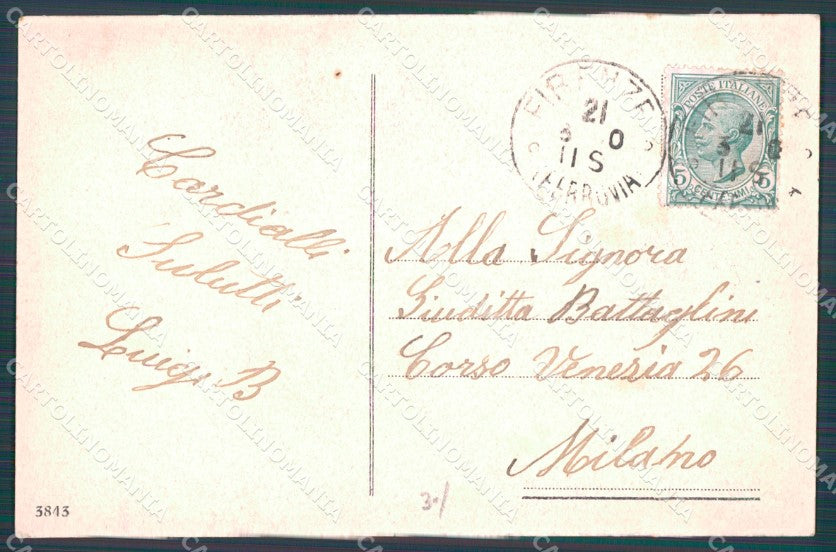 Cardialli
Saluti
Luigi B
FIRENZE
21
3 0
11 S
FERROVIA
POSTE ITALIANE
5 CENTESIMI 5
21
11 S
Alla Signora
Giuditta Battaglini
Corso Venezia 26
Milano
3843
3-/
CARTOLINOMANIA